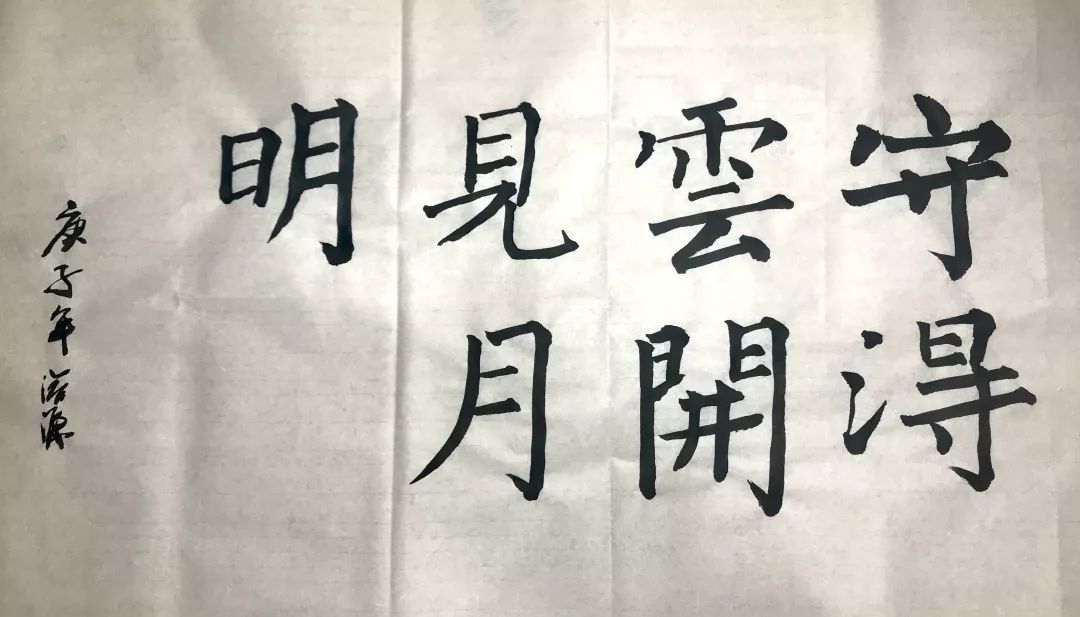 守得
雲開
見月
明
庚子年